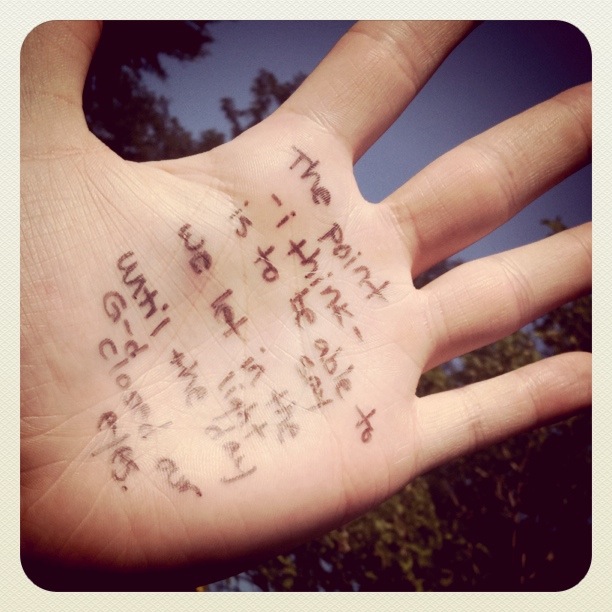 The point
-i think-
is to be able to
say
we let it. the
until the last day
G-d closed our
eyes.